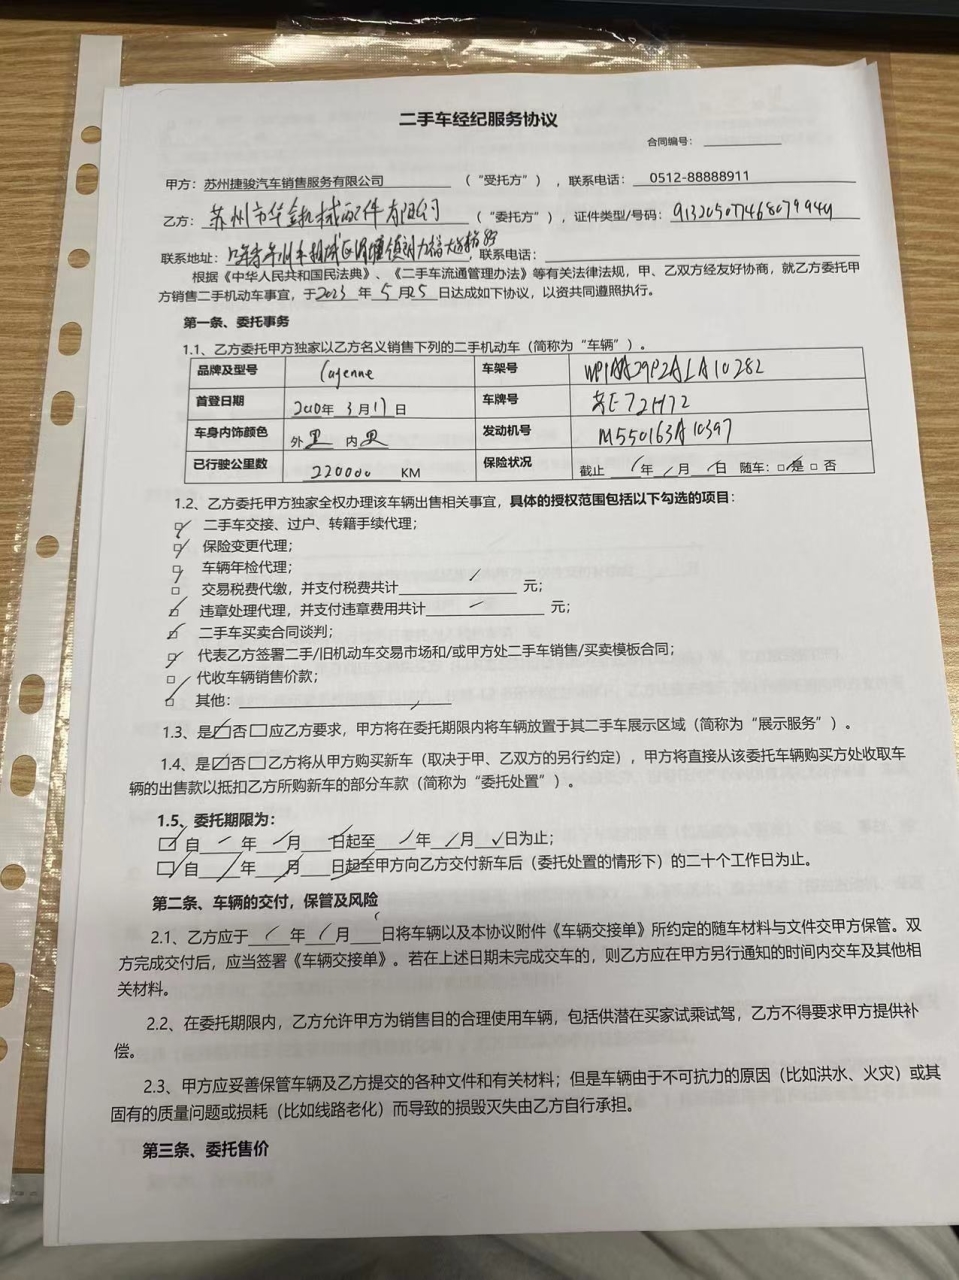 二手车经纪服务协议
合同编号：
甲方：苏州捷骏汽车销售服务有限公司 （“受托方”），联系电话：0512-88888911
乙方：苏州市华金机械配件有限公司 （“委托方”），证件类型/号码：91320507746807994U
联系地址： 联系电话：
根据《中华人民共和国民法典》、《二手车流通管理办法》等有关法律法规，甲、乙双方经友好协商，就乙方委托甲
方销售二手机动车事宜，于2023年5月25日达成如下协议，以资共同遵照执行。
第一条、委托事务
1.1、乙方委托甲方独家以乙方名义销售下列的二手机动车（简称为“车辆”）。
品牌及型号 Cayenne 车架号 WP1AA29P2ALA10282
首登日期 2010年3月17日 车牌号 苏E72H72
车身内饰颜色 外黑 内黑 发动机号 M550163A10397
已行驶公里数 220000 KM 保险状况 截止 / 年 / 月 / 日 随车：□是 □否
1.2、乙方委托甲方独家全权办理该车辆出售相关事宜，具体的授权范围包括以下勾选的项目：
□ 二手车交接、过户、转籍手续代理；
□ 保险变更代理；
□ 车辆年检代理；
□ 交易税费代缴，并支付税费共计 / 元；
□ 违章处理代理，并支付违章费用共计 / 元；
□ 二手车买卖合同谈判；
□ 代表乙方签署二手/旧机动车交易市场和/或甲方处二手车销售/买卖模板合同；
□ 代收车辆销售价款；
□ 其他： /
1.3、是□否□应乙方要求，甲方将在委托期限内将车辆放置于其二手车展示区域（简称为“展示服务”）。
1.4、是□否□乙方将从甲方购买新车（取决于甲、乙双方的另行约定），甲方将直接从该委托车辆购买方处收取车
辆的出售款以抵扣乙方所购新车的部分车款（简称为“委托处置”）。
1.5、委托期限为：
□自 / 年 / 月 / 日起至 / 年 / 月 / 日为止；
□自 / 年 / 月 / 日起至甲方向乙方交付新车后（委托处置的情形下）的二十个工作日为止。
第二条、车辆的交付，保管及风险
2.1、乙方应于 / 年 / 月 日将车辆以及本协议附件《车辆交接单》所约定的随车材料与文件交甲方保管。双
方完成交付后，应当签署《车辆交接单》。若在上述日期未完成交车的，则乙方应在甲方另行通知的时间内交车及其他相
关材料。
2.2、在委托期限内，乙方允许甲方为销售目的合理使用车辆，包括供潜在买家试乘试驾，乙方不得要求甲方提供补
偿。
2.3、甲方应妥善保管车辆及乙方提交的各种文件和有关材料；但是车辆由于不可抗力的原因（比如洪水、火灾）或其
固有的质量问题或损耗（比如线路老化）而导致的损毁灭失由乙方自行承担。
第三条、委托售价